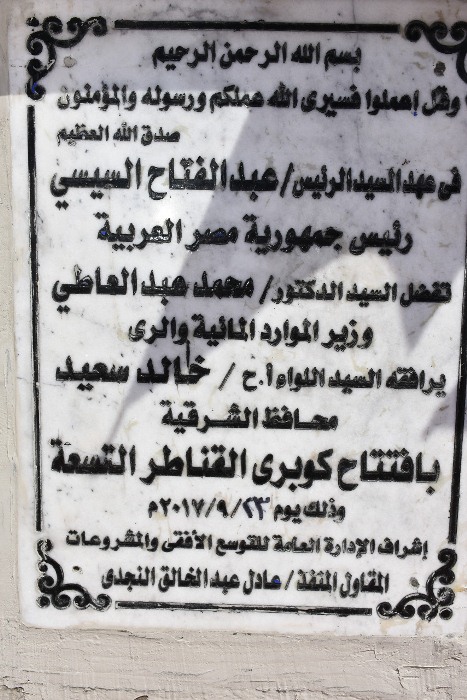 بسم الله الرحمن الرحيم
وقل إعملوا فسيرى الله عملكم ورسوله والمؤمنون
صدق الله العظيم
فى عهد السيد الرئيس/ عبد الفتاح السيسي
رئيس جمهورية مصر العربية
تفضل السيد الدكتور/ محمد عبد العاطي
وزير الموارد المائية والرى
يرافقه السيد اللواء أ.ح / خالد سعيد
محافظ الشرقية
بافتتاح كوبرى القناطر التسعة
وذلك يوم ٢٠١٧/٩/٢٣م
إشراف الإدارة العامة للتوسع الأفقى والمشروعات
المقاول المنفذ / عادل عبد الخالق النجدى